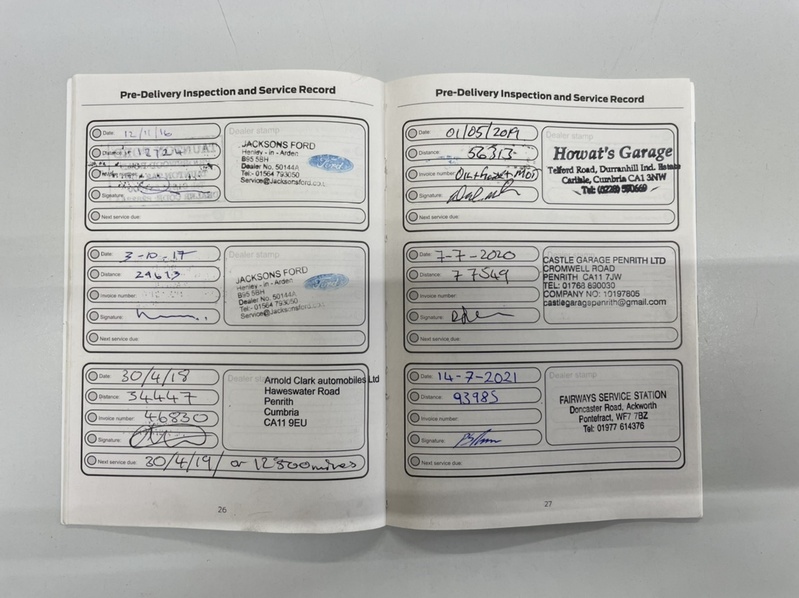 Pre-Delivery Inspection and Service Record
Date: 12/11/16
Distance: 12724
Signature:
Next service due:
Dealer stamp
JACKSONS FORD
Henley - in - Arden
B95 5BH
Dealer No. 50144A
Tel:- 01564 793050
Service@Jacksonsford.com
Ford
Date: 3-10-17
Distance: 29613
Invoice number:
Signature:
Next service due:
JACKSONS FORD
Henley - in - Arden
B95 5BH
Dealer No. 50144A
Tel:- 01564 793050
Service@Jacksonsford.com
Date: 30/4/18
Distance: 34447
Invoice number: 46830
Signature:
Next service due: 30/4/19/ or 12500miles
Dealer stamp
Arnold Clark automobiles Ltd
Haweswater Road
Penrith
Cumbria
CA11 9EU
26
Pre-Delivery Inspection and Service Record
Date: 01/05/2019
Distance: 56313
Invoice number: Oil + MOT
Signature:
Next service due:
Dealer stamp
Howat's Garage
Telford Road, Durranhill Ind. Estate
Carlisle, Cumbria CA1 3NW
Date: 7-7-2020
Distance: 77549
Invoice number:
Signature:
Next service due:
CASTLE GARAGE PENRITH LTD
CROMWELL ROAD
PENRITH CA11 7JW
TEL: 01768 890030
COMPANY NO: 10197605
castlegaragepenrith@gmail.com
Date: 14-7-2021
Distance: 93985
Invoice number:
Signature:
Next service due:
Dealer stamp
FAIRWAYS SERVICE STATION
Doncaster Road, Ackworth
Pontefract, WF7 7BZ
Tel: 01977 614376
27